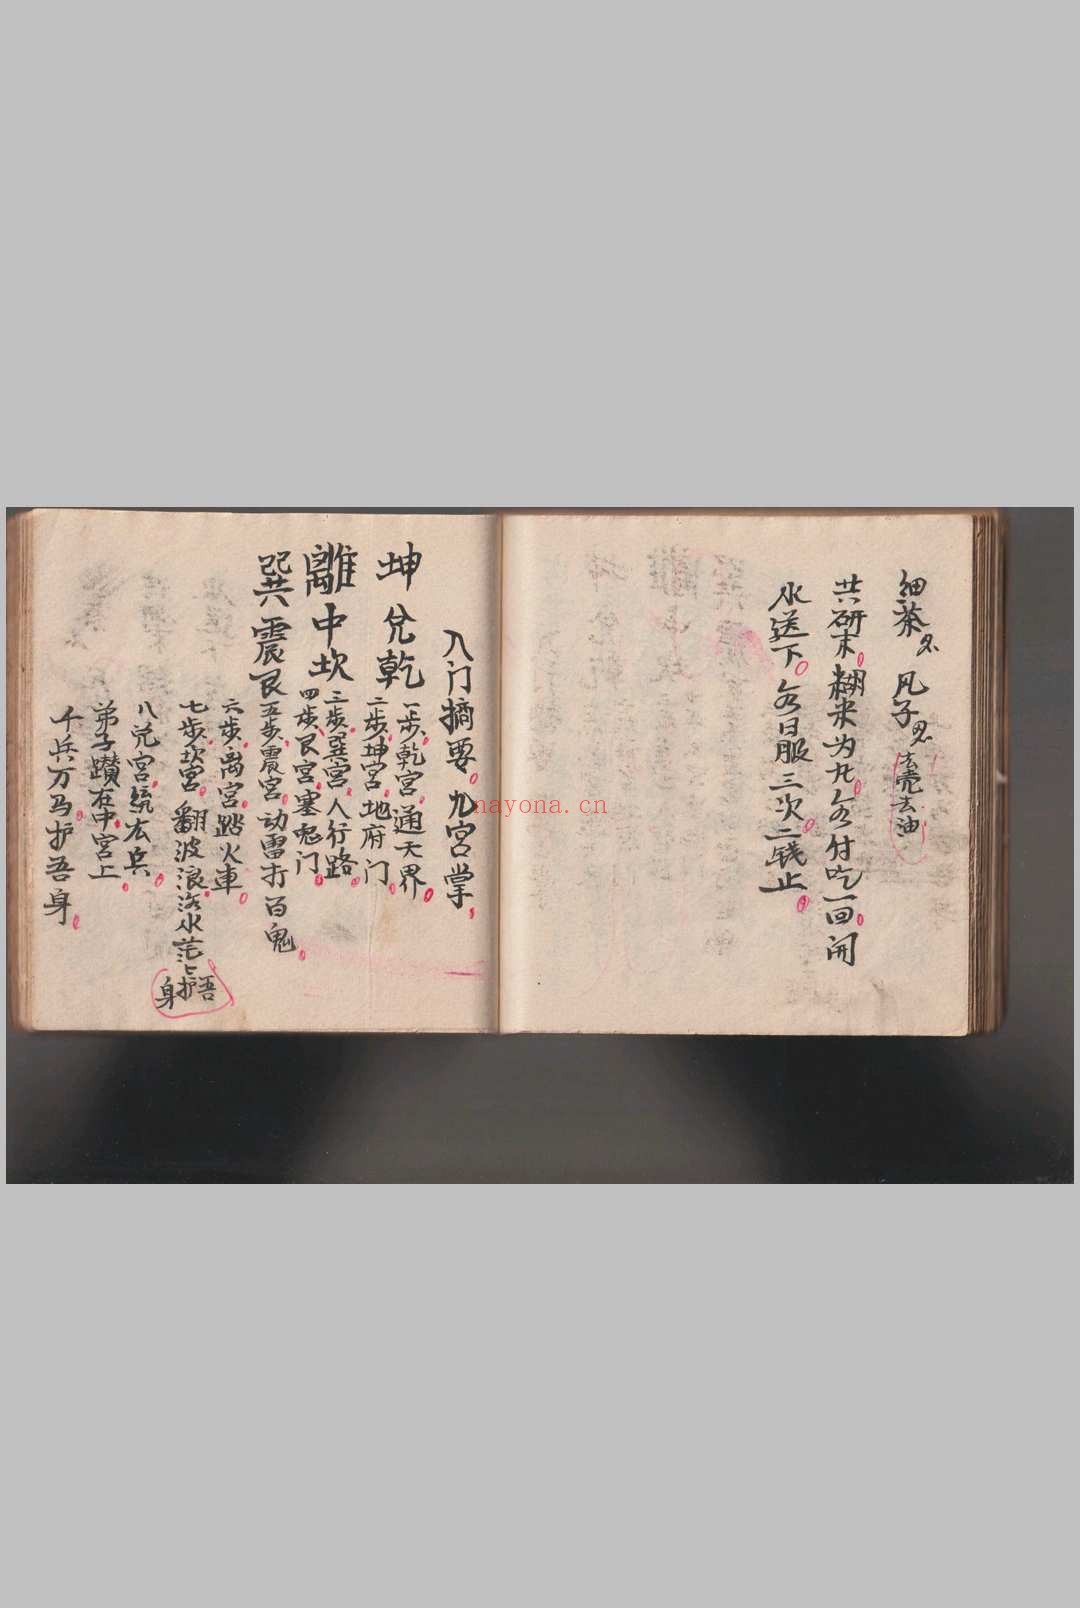 细茶 凡子 去壳去油
共研末糊米为九 每付吃一回 开
水送下 每日服三次 二钱止
入门摘要 九宫掌
坤 兌 乾
離 中 坎
巽 震 艮
一步乾宫通天界
二步坤宫地府门
三步巽宫人行路
四步艮宫塞鬼门
五步震宫动雷打百鬼
六步离宫踏火車
七步坎宫翻波浪 洛水茫々护吾身
八兌宫统左兵
弟子躦在中宫上
千兵万马护吾身
nayona.cn